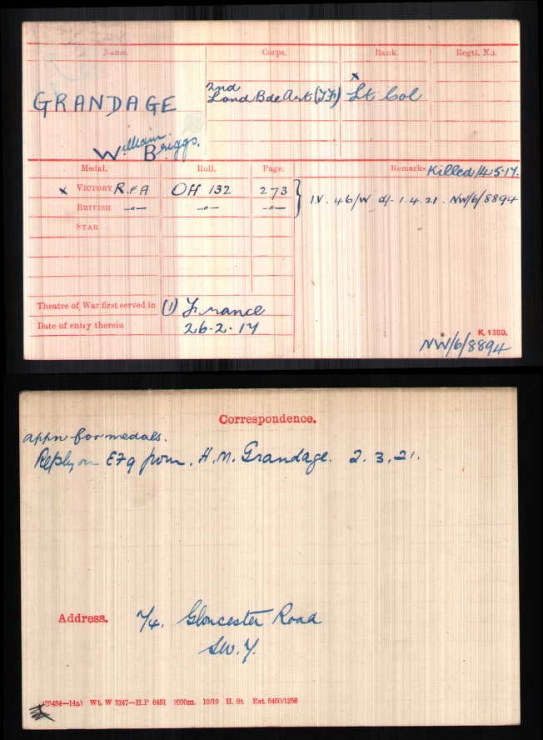 Name. Corps. Rank. Regtl. No.
GRANDAGE 2nd Lond Bde Art (TF) x Lt Col
William Briggs.
Medal. Roll. Page. Remarks Killed 14.5.17.
x VICTORY R.F.A Off 132 273 } I.V. 46/W d/- 1.4.21. NW/6/8894
BRITISH -"- -"- -"-
STAR
Theatre of War first served in (1) France
Date of entry therein 26-2-17
K. 1380.
NW/6/8894
Correspondence.
appn for medals.
Reply on EF9 from H.M. Grandage. 2.3.21.
Address. 74. Gloucester Road
S.W.7.
Wt. W 5347—H.P 6451 10/19 H. St